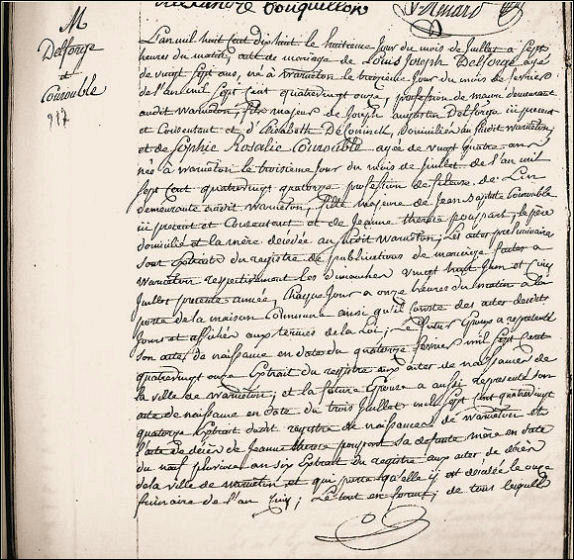 Alexandre Bouquillon
Renard
M
Delforge
et
Courouble
917
L'an mil huit cent dix huit le huitieme Jour du mois de Juillet a Sept
heures du matin, acte de mariage de Louis Joseph Delforge agé
de vingt sept ans, né a Warneton le troizieme Jour du mois de fevrier
de l'an mil Sept Cent quatrevingt onze, profession de demeurant
audit Warneton, fils majeur de Joseph augustin Delforge ici present
et Consentant et d'Elisabeth DeConinck, Domiciliés audit Warneton,
et de Sophie Rosalie Couroublle agée de vingt quatre ans
née a Warneton le troisieme Jour du mois de Juillet de l'an mil
Sept Cent quatrevingt quatorze profession de fileuse de Lin
demeurante audit Warneton, fille majeure de Jean Baptiste Courouble
ici present et Consentant et de Jeanne therese poupart, le père
domicilié et la mère décédée audit Warneton; Les actes preliminaires
sont Extraits du registre de publications de mariage faites a
Warneton respectivement les dimanches vingt huit Juin et Cinq
Juillet presente année, Chaque Jour a onze heures du matin a la
porte de la maison Commune ainsi qu'il Conste des actes desdits
Jours et affichés aux termes de la Loi; Le futur Epoux a representé
son acte de naissance en date du quatorze fevrier mil Sept Cent
quatrevingt onze Extrait du registre aux actes de naissances de
la ville de Warneton; et la future Epouse a aussi representé son
acte de naissance en date du trois Juillet mil Sept Cent quatrevingt
quatorze Extrait dudit registre de naissances de Warneton et
l'acte de décès de Jeanne therese poupart sa defunte mère en date
du neuf pluviose an six Extrait du registre aux actes de décès
de la ville de Warneton et qui porte qu'elle y est décédée le onze
frimaire de l'an ; Le tout en forme; de tous lesquels